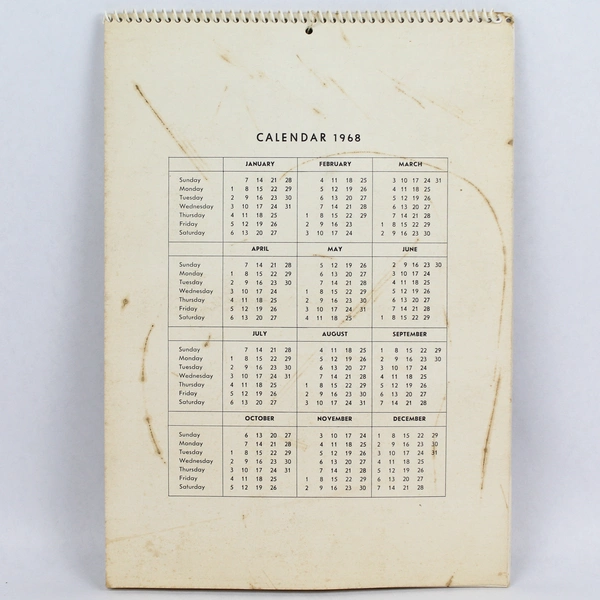 CALENDAR 1968
JANUARY FEBRUARY MARCH
Sunday 7 14 21 28 4 11 18 25 3 10 17 24 31
Monday 1 8 15 22 29 5 12 19 26 4 11 18 25
Tuesday 2 9 16 23 30 6 13 20 27 5 12 19 26
Wednesday 3 10 17 24 31 7 14 21 28 6 13 20 27
Thursday 4 11 18 25 1 8 15 22 29 7 14 21 28
Friday 5 12 19 26 2 9 16 23 1 8 15 22 29
Saturday 6 13 20 27 3 10 17 24 2 9 16 23 30
APRIL MAY JUNE
Sunday 7 14 21 28 5 12 19 26 2 9 16 23 30
Monday 1 8 15 22 29 6 13 20 27 3 10 17 24
Tuesday 2 9 16 23 30 7 14 21 28 4 11 18 25
Wednesday 3 10 17 24 1 8 15 22 29 5 12 19 26
Thursday 4 11 18 25 2 9 16 23 30 6 13 20 27
Friday 5 12 19 26 3 10 17 24 31 7 14 21 28
Saturday 6 13 20 27 4 11 18 25 1 8 15 22 29
JULY AUGUST SEPTEMBER
Sunday 7 14 21 28 4 11 18 25 1 8 15 22 29
Monday 1 8 15 22 29 5 12 19 26 2 9 16 23 30
Tuesday 2 9 16 23 30 6 13 20 27 3 10 17 24
Wednesday 3 10 17 24 31 7 14 21 28 4 11 18 25
Thursday 4 11 18 25 1 8 15 22 29 5 12 19 26
Friday 5 12 19 26 2 9 16 23 30 6 13 20 27
Saturday 6 13 20 27 3 10 17 24 31 7 14 21 28
OCTOBER NOVEMBER DECEMBER
Sunday 6 13 20 27 3 10 17 24 1 8 15 22 29
Monday 7 14 21 28 4 11 18 25 2 9 16 23 30
Tuesday 1 8 15 22 29 5 12 19 26 3 10 17 24 31
Wednesday 2 9 16 23 30 6 13 20 27 4 11 18 25
Thursday 3 10 17 24 31 7 14 21 28 5 12 19 26
Friday 4 11 18 25 1 8 15 22 29 6 13 20 27
Saturday 5 12 19 26 2 9 16 23 30 7 14 21 28